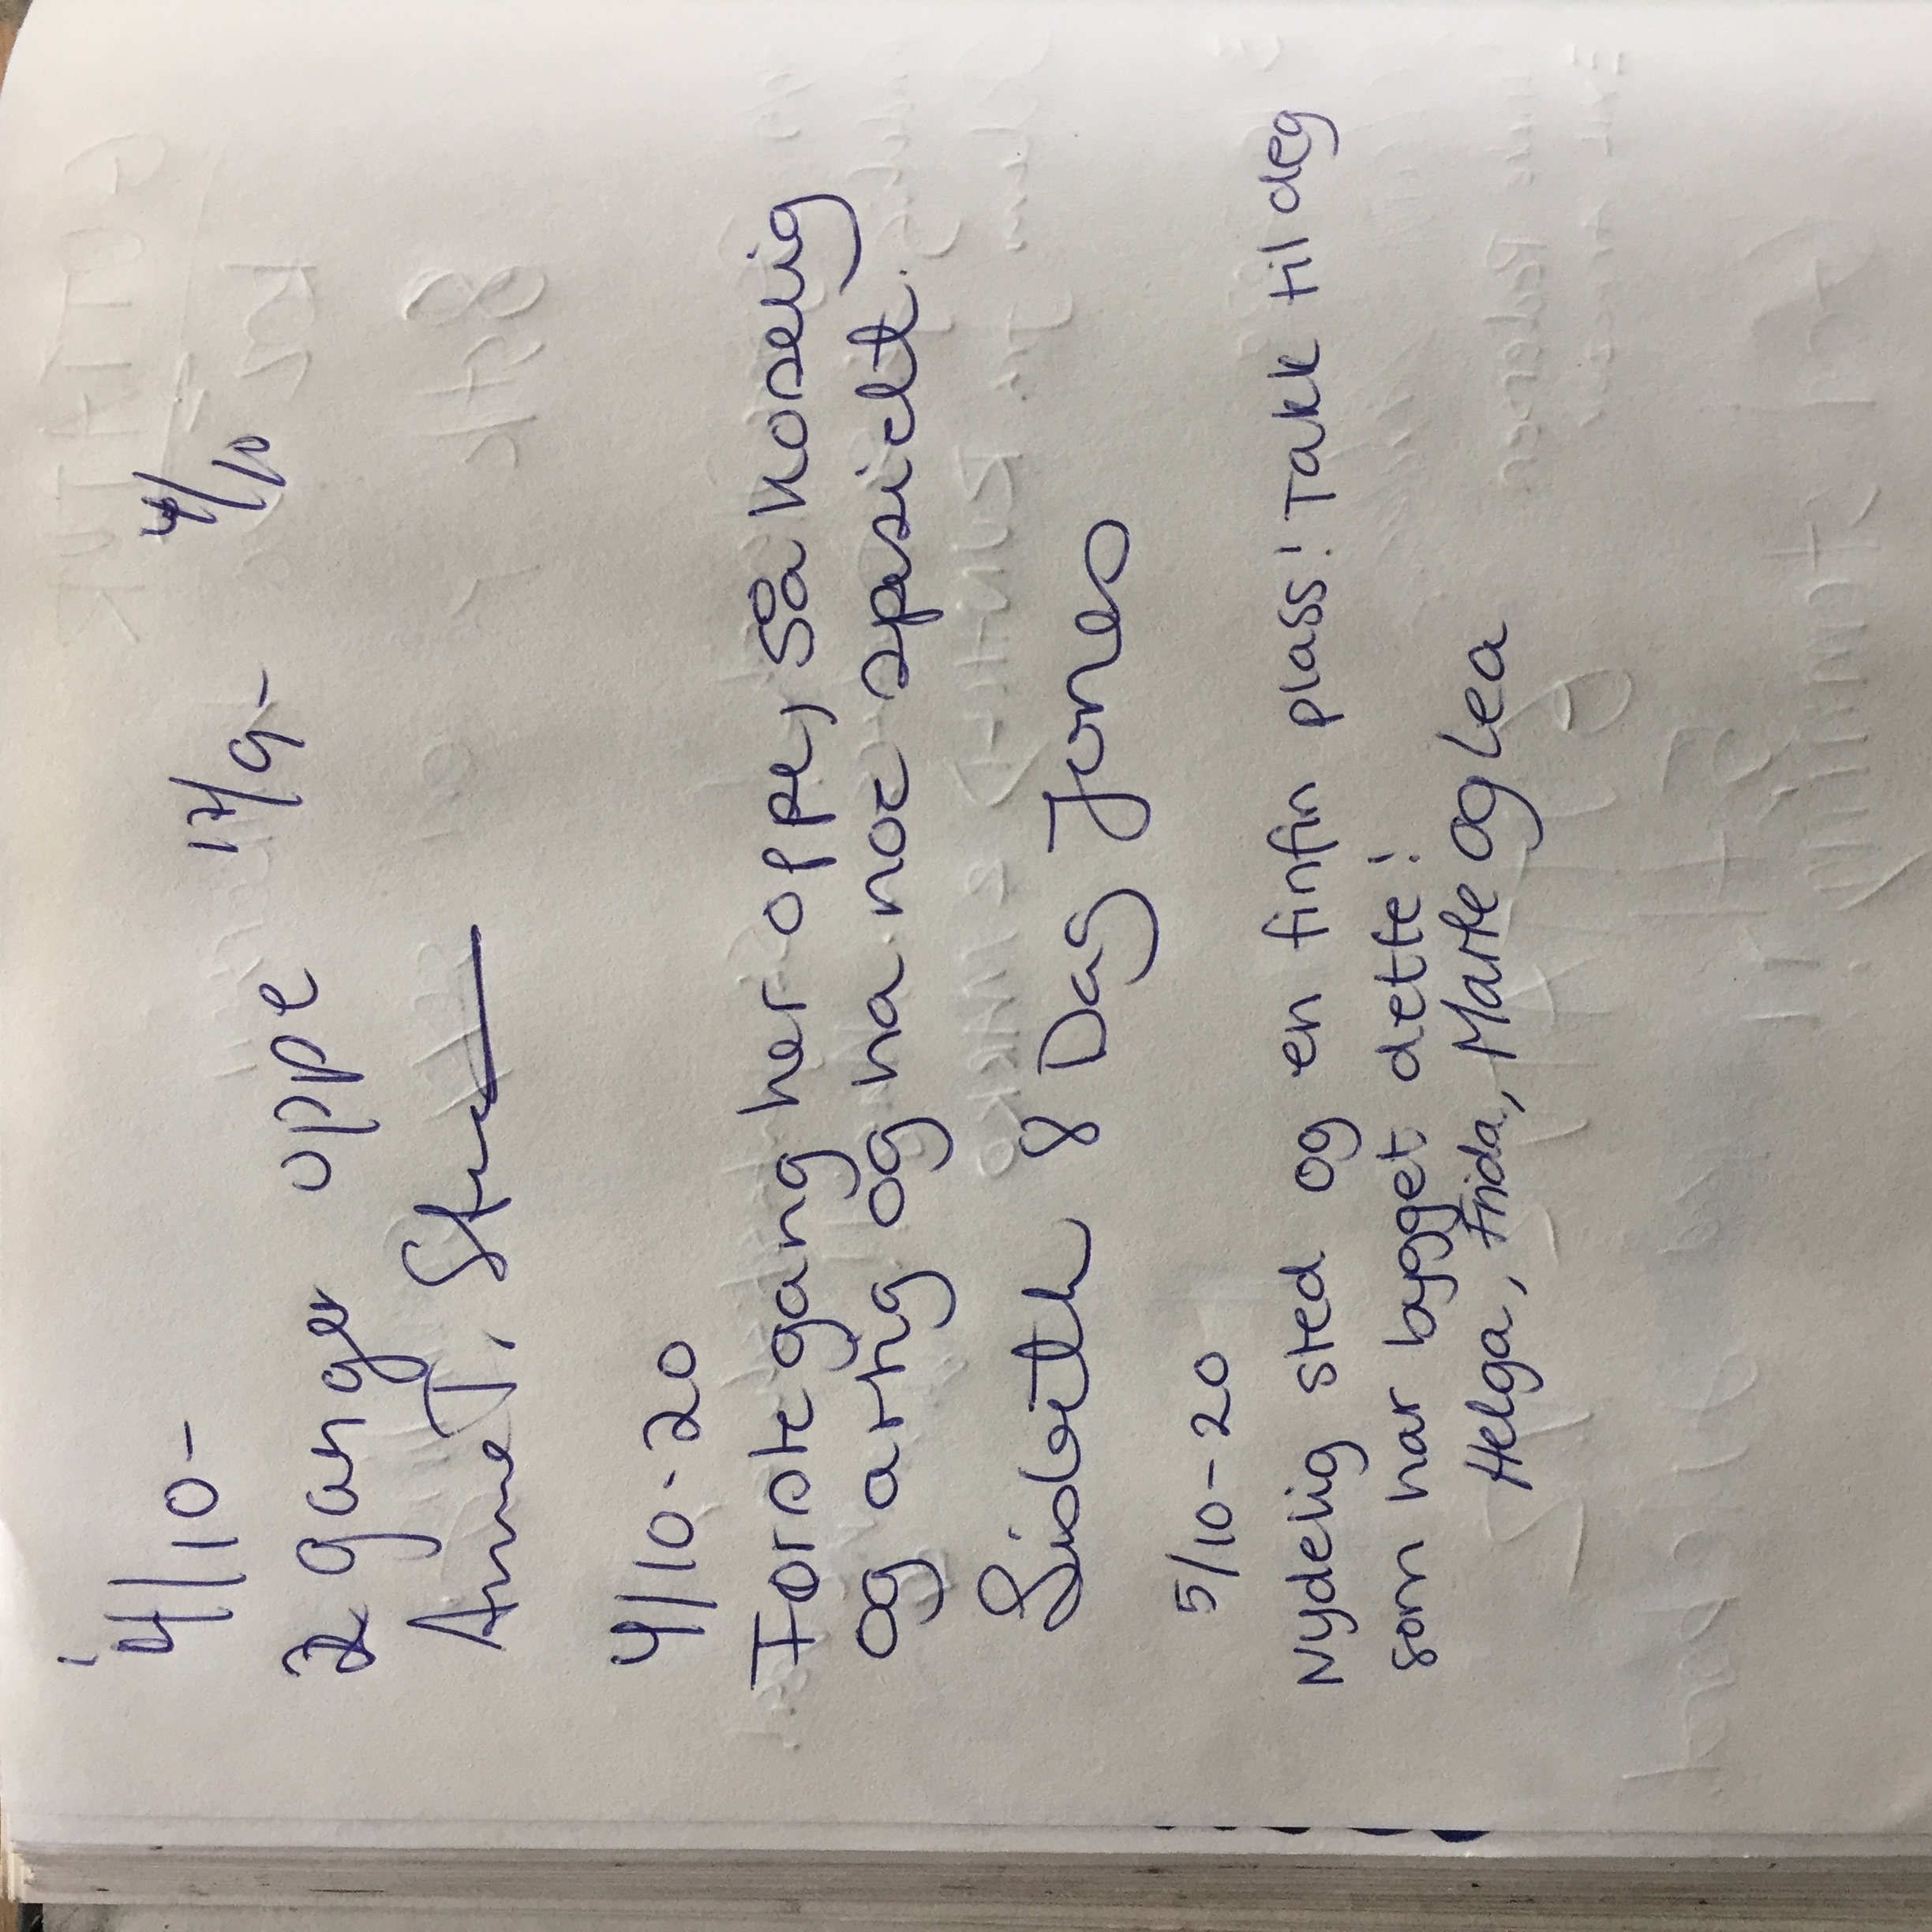 4/10-
17/9-
4/10
2 ganger oppe
Arne T.
4/10-20
Første gang her oppe, så koselig
og artig og ha noe spesielt.
Lisbeth & Dag Jones
5/10-20
Nydelig sted og en finfin plass! Takk til deg
som har bygget dette!
Helga, Frida, Marte og Lea